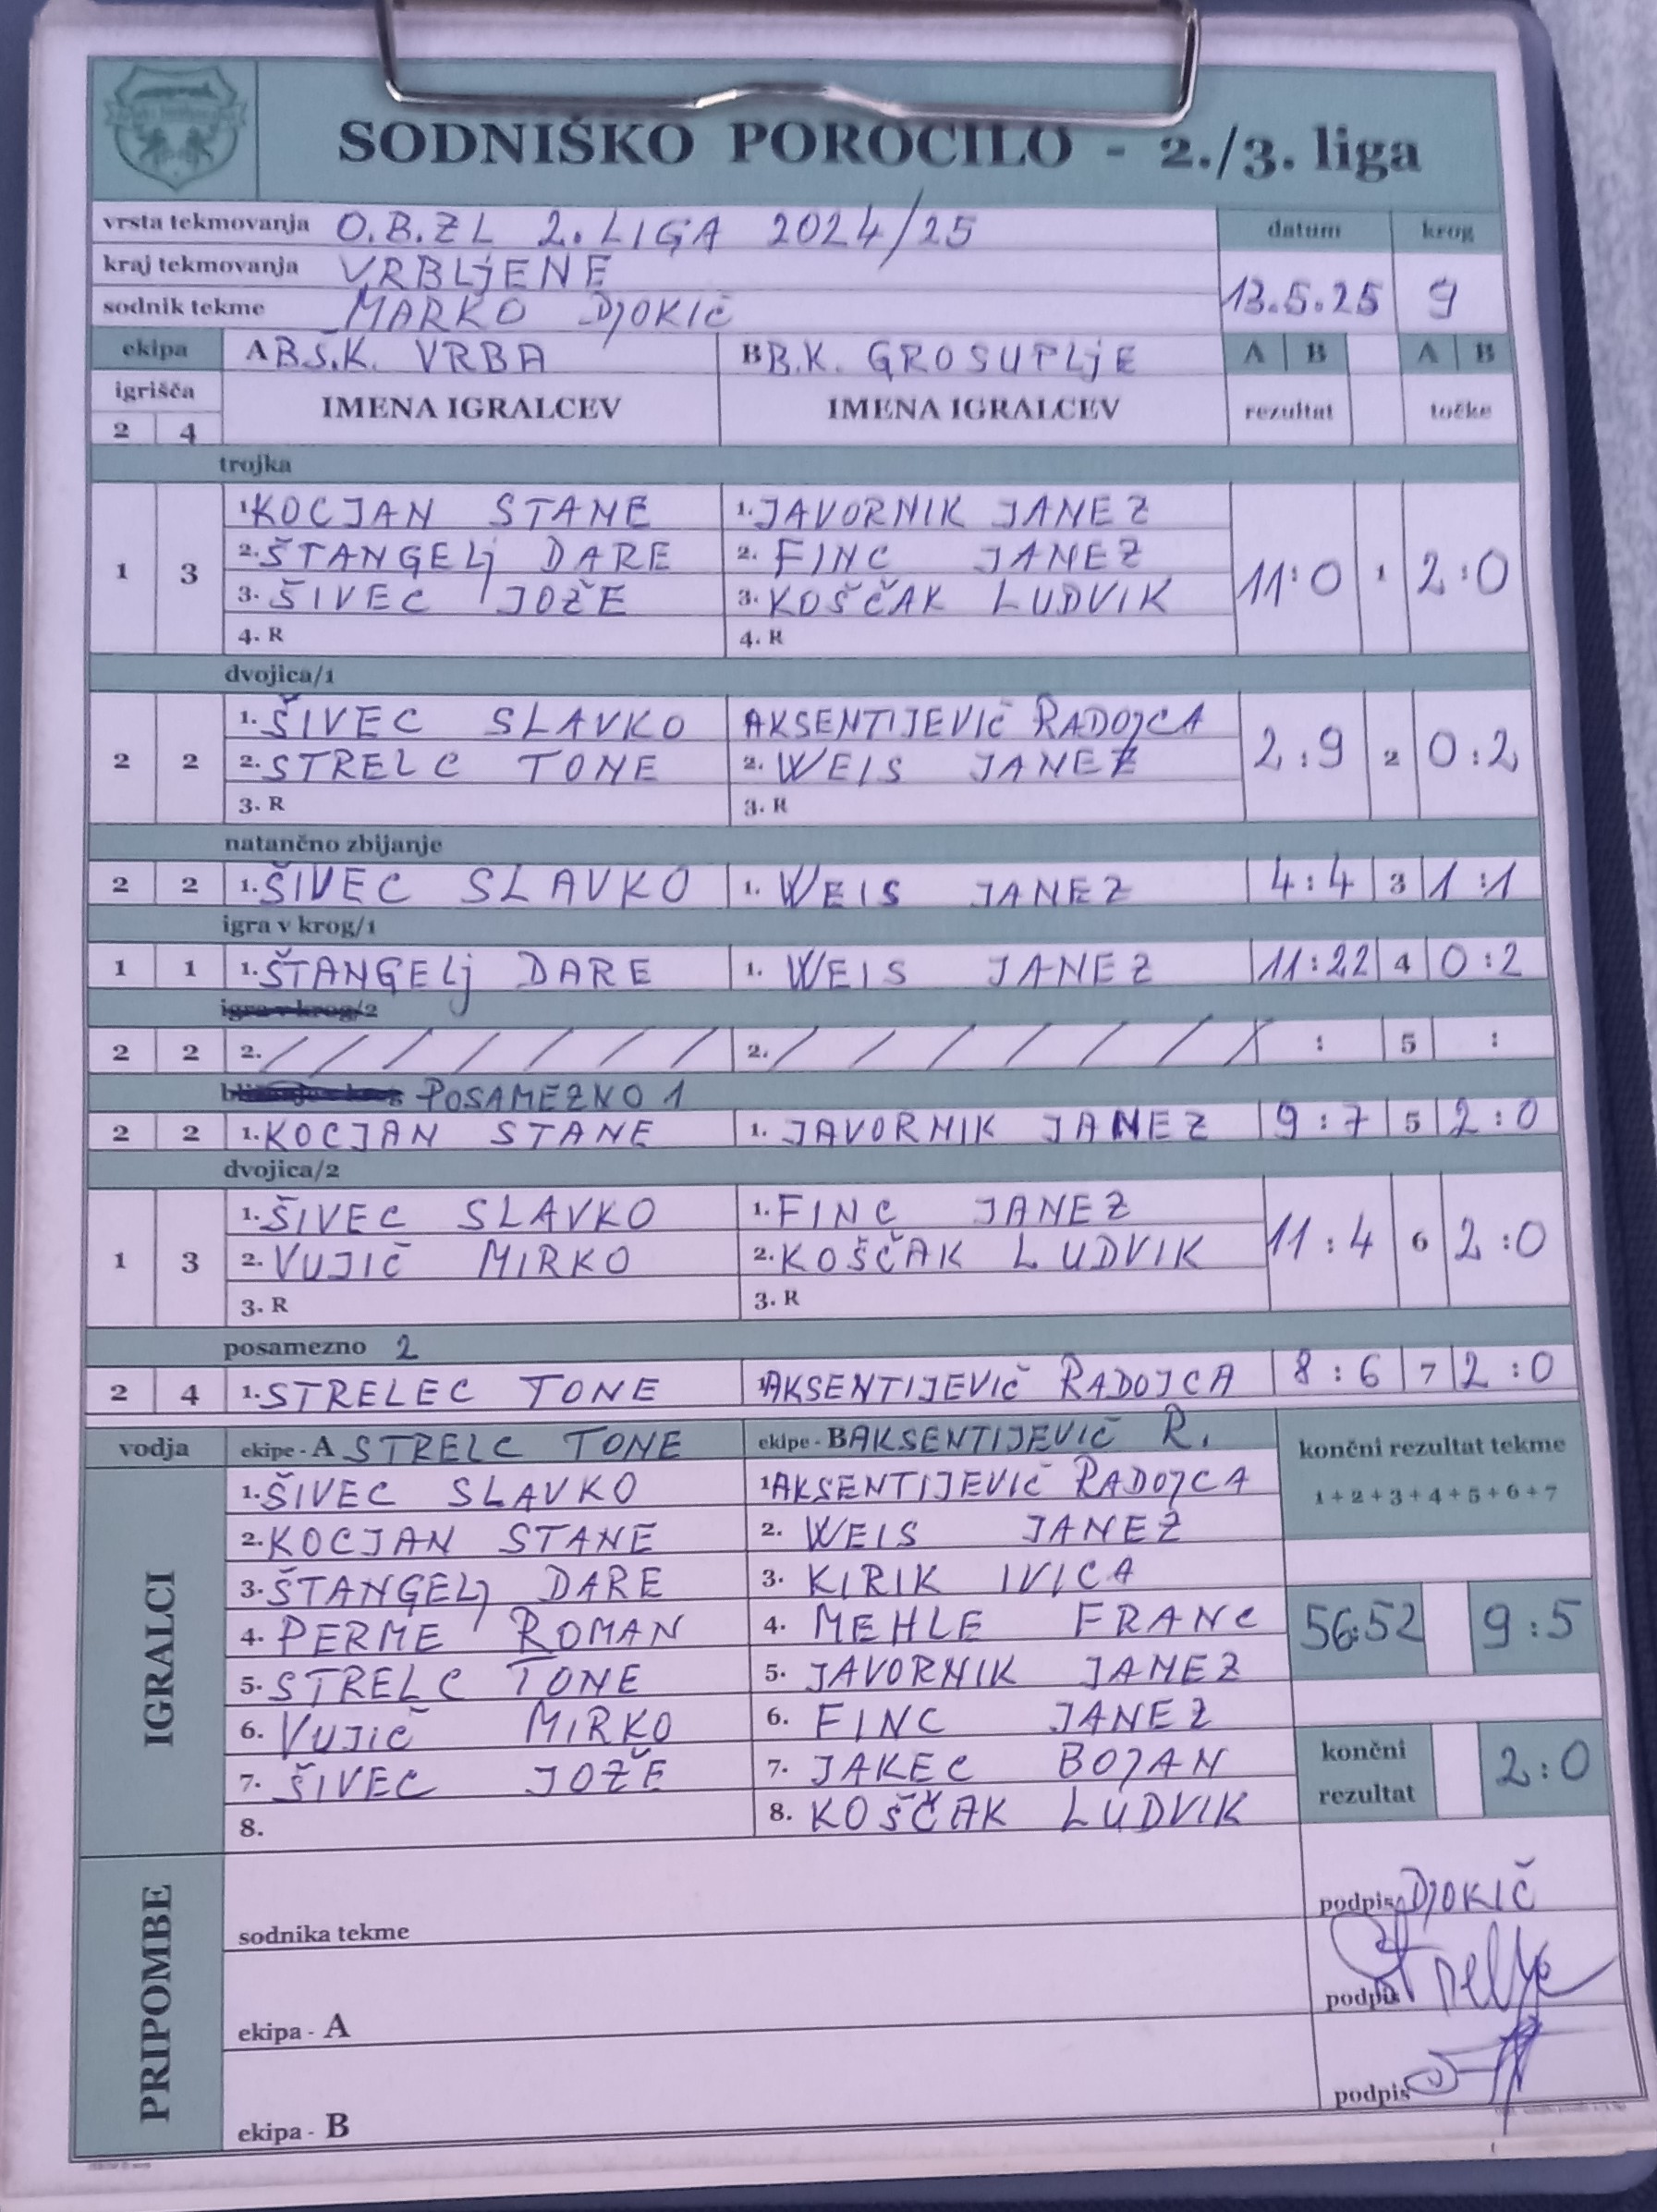 SODNIŠKO POROČILO - 2./3. liga
vrsta tekmovanja O.B.ZL 2. LIGA 2024/25 datum krog
kraj tekmovanja VRBLjENE 13.5.25 9
sodnik tekme MARKO DJOKIČ
ekipa A B.Š.K. VRBA B B.K. GROSUPLjE A B A B
igrišča IMENA IGRALCEV IMENA IGRALCEV rezultat točke
2 4
trojka
1 3 1. KOCJAN STANE 1. JAVORNIK JANEZ 11:0 1 2:0
2. ŠTANGELj DARE 2. FINC JANEZ
3. ŠIVEC JOŽE 3. KOŠČAK LUDVIK
4. R 4. R
dvojica/1
2 2 1. ŠIVEC SLAVKO AKSENTIJEVIČ RADOJCA 2:9 2 0:2
2. STRELC TONE 2. WEIS JANEZ
3. R 3. R
natančno zbijanje
2 2 1. ŠIVEC SLAVKO 1. WEIS JANEZ 4:4 3 1:1
igra v krog/1
1 1 1. ŠTANGELj DARE 1. WEIS JANEZ 11:22 4 0:2
igra v krog/2
2 2 2. / / / / / / / 2. / / / / / / / : 5 :
POSAMEZNO 1
2 2 1. KOCJAN STANE 1. JAVORNIK JANEZ 9:7 5 2:0
dvojica/2
1 3 1. ŠIVEC SLAVKO 1. FINC JANEZ 11:4 6 2:0
2. VUJIČ MIRKO 2. KOŠČAK LUDVIK
3. R 3. R
posamezno 2
2 4 1. STRELEC TONE 1. AKSENTIJEVIČ RADOJCA 8:6 7 2:0
vodja ekipe - A STRELC TONE ekipe - B AKSENTIJEVIČ R. končni rezultat tekme
IGRALCI 1. ŠIVEC SLAVKO 1. AKSENTIJEVIČ RADOJCA 1 + 2 + 3 + 4 + 5 + 6 + 7
2. KOCJAN STANE 2. WEIS JANEZ
3. ŠTANGELJ DARE 3. KIRIK IVICA
4. PERME ROMAN 4. MEHLE FRANC 56:52 9:5
5. STRELC TONE 5. JAVORNIK JANEZ
6. VUJIČ MIRKO 6. FINC JANEZ
7. ŠIVEC JOŽE 7. JAKEC BOJAN končni rezultat 2:0
8. 8. KOŠČAK LUDVIK
PRIPOMBE
sodnika tekme podpis DJOKIČ
ekipa - A podpis
ekipa - B podpis